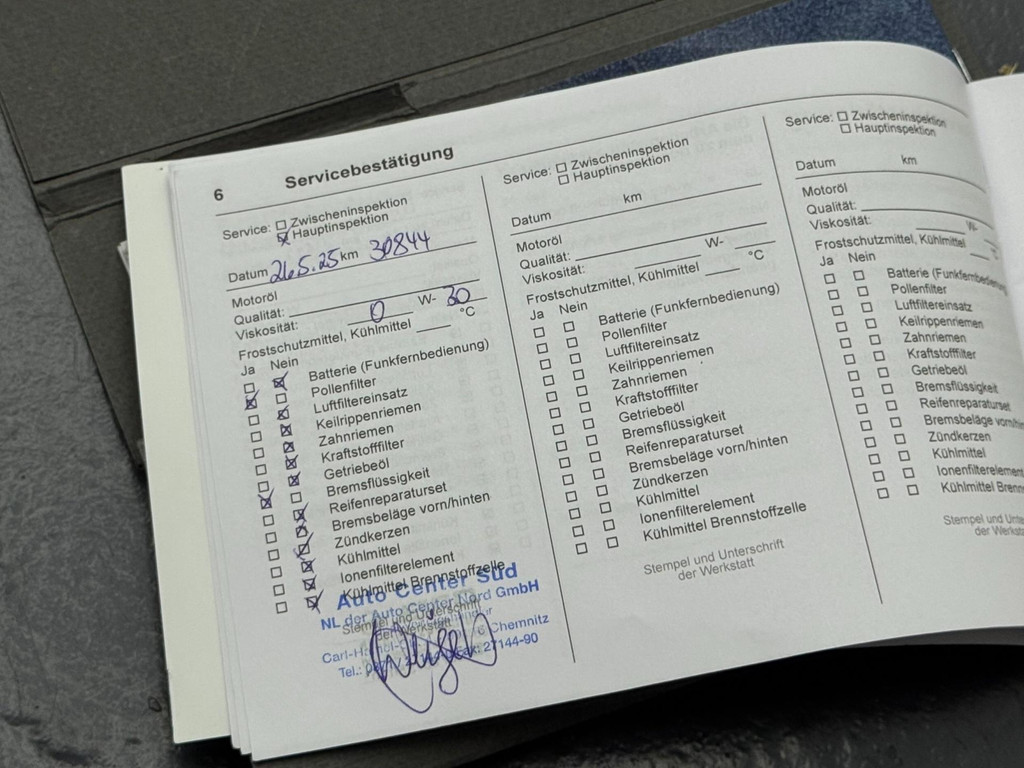 6 Servicebestätigung
Service: ☐ Zwischeninspektion
☒ Hauptinspektion
Datum 26.5.25 km 30844
Motoröl
Qualität:
Viskosität: 0 W- 30
Frostschutzmittel, Kühlmittel °C
Ja Nein
Batterie (Funkfernbedienung)
Pollenfilter
Luftfiltereinsatz
Keilrippenriemen
Zahnriemen
Kraftstofffilter
Getriebeöl
Bremsflüssigkeit
Reifenreparaturset
Bremsbeläge vorn/hinten
Zündkerzen
Kühlmittel
Ionenfilterelement
Kühlmittel Brennstoffzelle
Stempel und Unterschrift
der Werkstatt
Auto Center Süd
NL der Auto Center Nord GmbH
Chemnitz
Tel.: 27144-90
Service: ☐ Zwischeninspektion
☐ Hauptinspektion
Datum km
Motoröl
Qualität:
Viskosität: W-
Frostschutzmittel, Kühlmittel °C
Ja Nein
Batterie (Funkfernbedienung)
Pollenfilter
Luftfiltereinsatz
Keilrippenriemen
Zahnriemen
Kraftstofffilter
Getriebeöl
Bremsflüssigkeit
Reifenreparaturset
Bremsbeläge vorn/hinten
Zündkerzen
Kühlmittel
Ionenfilterelement
Kühlmittel Brennstoffzelle
Stempel und Unterschrift
der Werkstatt
Service: ☐ Zwischeninspektion
☐ Hauptinspektion
Datum km
Motoröl
Qualität:
Viskosität: W-
Frostschutzmittel, Kühlmittel °C
Ja Nein
Batterie (Funkfernbedienung
Pollenfilter
Luftfiltereinsatz
Keilrippenriemen
Zahnriemen
Kraftstofffilter
Getriebeöl
Bremsflüssigkeit
Reifenreparaturset
Bremsbeläge vorn/hin
Zündkerzen
Kühlmittel
Ionenfilterelement
Kühlmittel Brenn
Stempel und Unte
der Werks